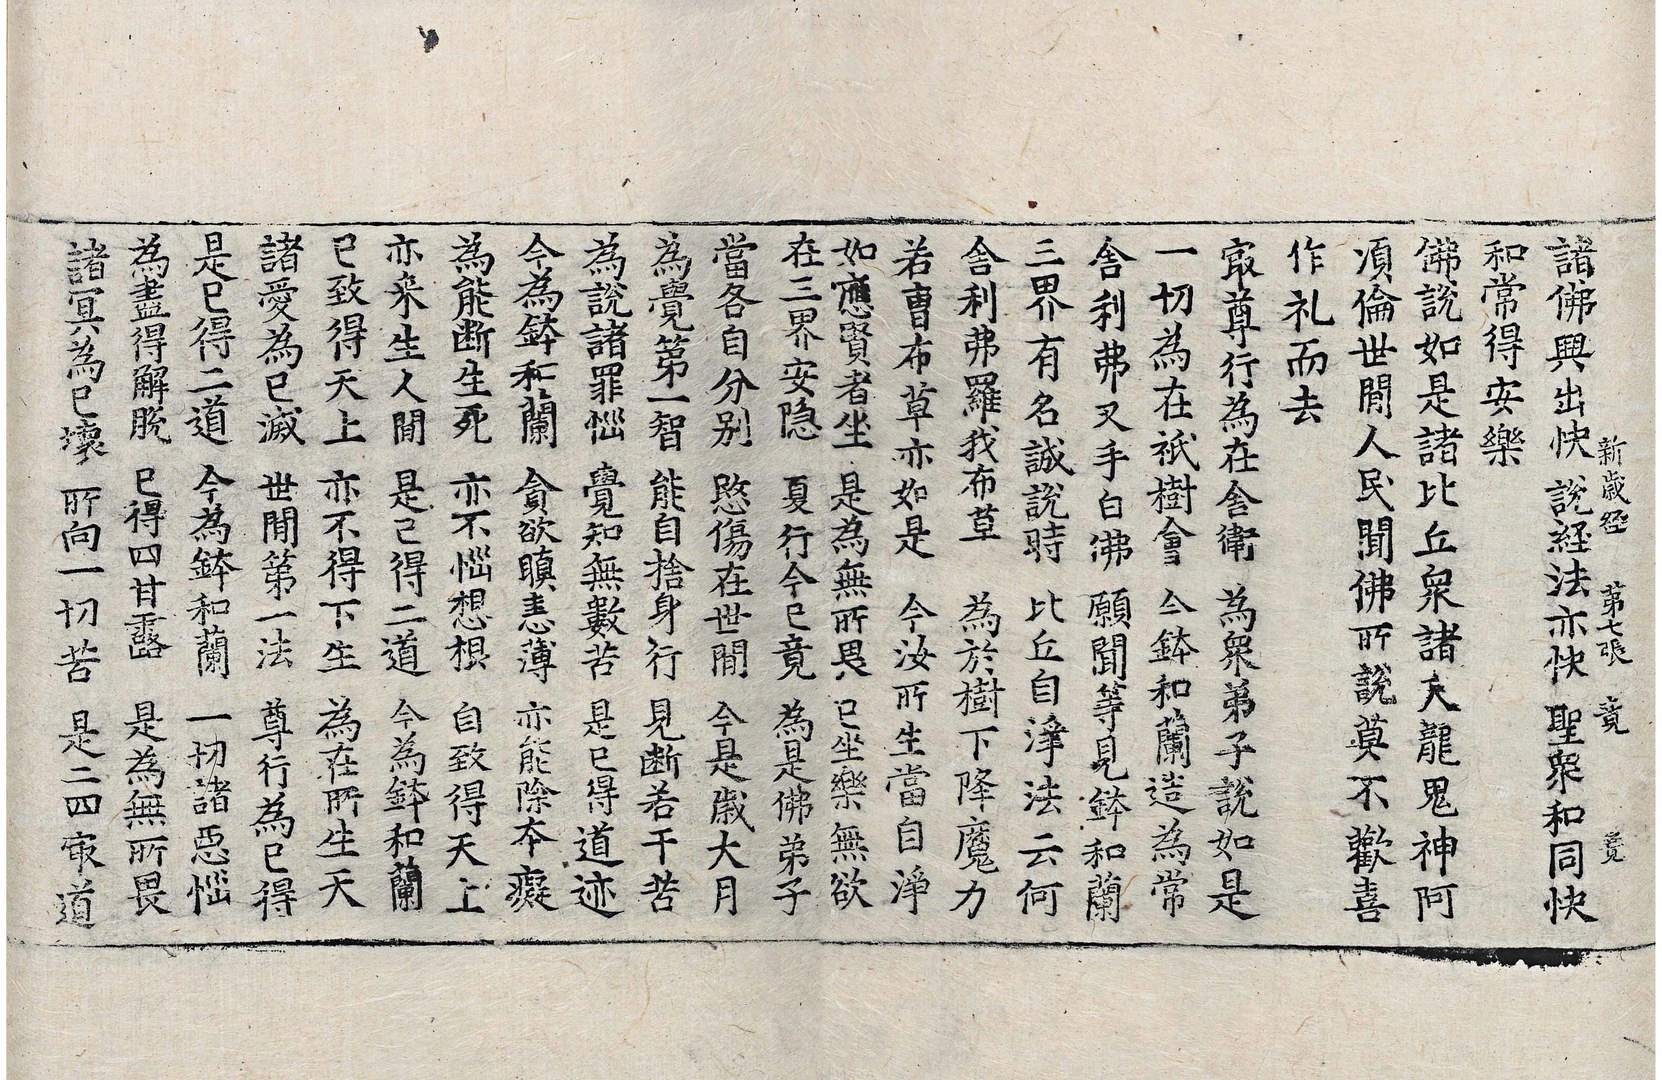 新歲経　第七張　竟　竟
諸佛興出快　說経法亦快　聖衆和同快
和常得安樂
佛說如是諸比丘衆諸天龍鬼神阿
湏倫世閒人民聞佛所說莫不歡喜
作礼而去
㝡尊行為在舍衛　為衆弟子說如是
一切為在祇樹會　今鉢和蘭造為常
舍利弗叉手白佛　願聞等見鉢和蘭
三界有名誠說時　比丘自淨法云何
舍利弗羅我布草　為於樹下降魔力
若曹布草亦如是　今汝所生當自淨
如應賢者坐　是為無所畏　已坐樂無欲
在三界安隐　夏行今已竟　為是佛弟子
當各自分别　愍傷在世閒　今是歲大月
為覺第一智　能自捨身行　見断若干苦
為說諸罪惱　覺知無數苦　是已得道迹
今為鉢和蘭　貪欲瞋恚薄　亦能除本癡
為能断生死　亦不惱想棞　自致得天上
亦来生人閒　是已得二道　今為鉢和蘭
已致得天上　亦不得下生　為在所生天
諸愛為已滅　世閒第一法　尊行為已得
是已得二道　今為鉢和蘭　一切諸惡惱
為盡得解脫　已得四甘露　是為無所畏
諸冥為已壞　所向一切苦　是二四㝡道